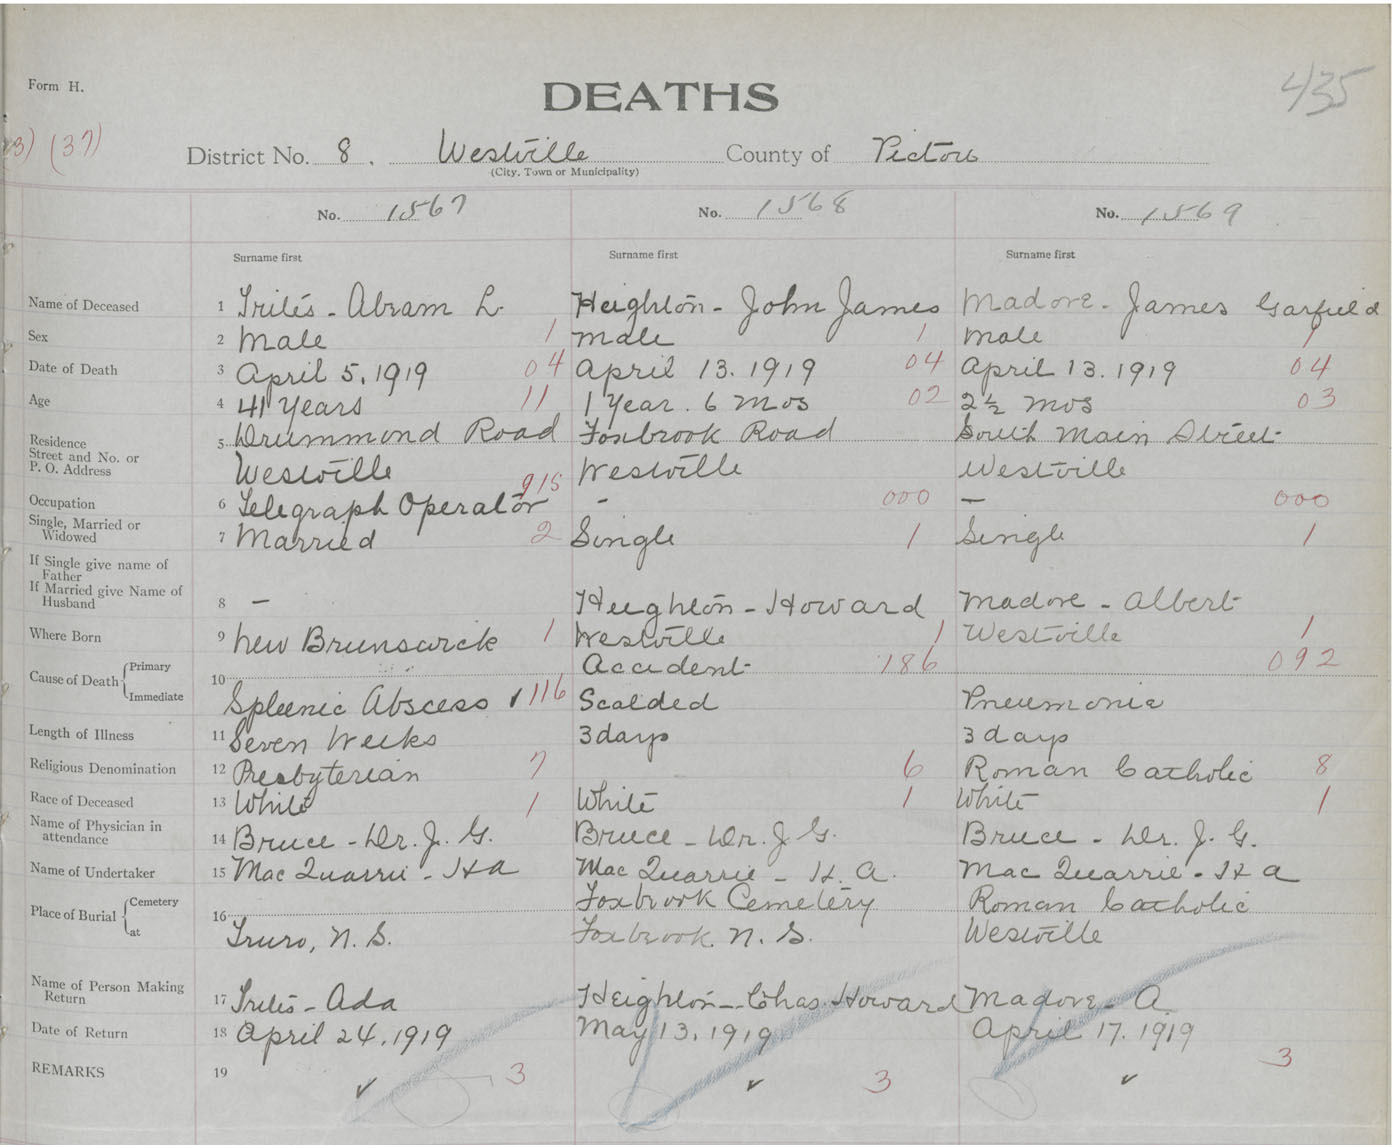 Form H.
DEATHS
435
3) (37)
District No. 8. Westville County of Pictou
(City, Town or Municipality)
No. 1567 No. 1568 No. 1569
Surname first Surname first Surname first
Name of Deceased 1 Trites - Abram L. Heighton - John James Madore - James Garfield
Sex 2 Male 1 Male 1 Male 1
Date of Death 3 April 5, 1919 04 April 13. 1919 04 April 13. 1919 04
Age 4 41 Years 11 1 Year. 6 Mos 02 2½ Mos 03
Residence
Street and No. or
P. O. Address
5 Drummond Road Foxbrook Road South Main Street
Westville Westville Westville
Occupation 6 Telegraph Operator 915 - 000 - 000
Single, Married or
Widowed
7 Married 2 Single 1 Single 1
If Single give name of
Father
If Married give Name of
Husband
8 - Heighton - Howard Madore - Albert
Where Born 9 New Brunswick 1 Westville 1 Westville 1
Cause of Death Primary 10 Accident 186 092
Immediate Spleenic Abscess ✓ 116 Scalded Pneumonia
Length of Illness 11 Seven Weeks 3 days 3 days
Religious Denomination 12 Presbyterian 7 6 Roman Catholic 8
Race of Deceased 13 White 1 White 1 White 1
Name of Physician in
attendance
14 Bruce - Dr. J. G. Bruce - Dr. J. G. Bruce - Dr. J. G.
Name of Undertaker 15 Mac Quarrie - H A Mac Quarrie - H. A. Mac Quarrie - H A
Place of Burial Cemetery 16 Foxbrook Cemetery Roman Catholic
at Truro, N. S. Foxbrook. N. S. Westville
Name of Person Making
Return
17 Trites - Ada Heighton - Chas. Howard Madore - A.
Date of Return 18 April 24, 1919 May 13, 1919 April 17. 1919
REMARKS 19 ✓ 3 ✓ 3 ✓ 3